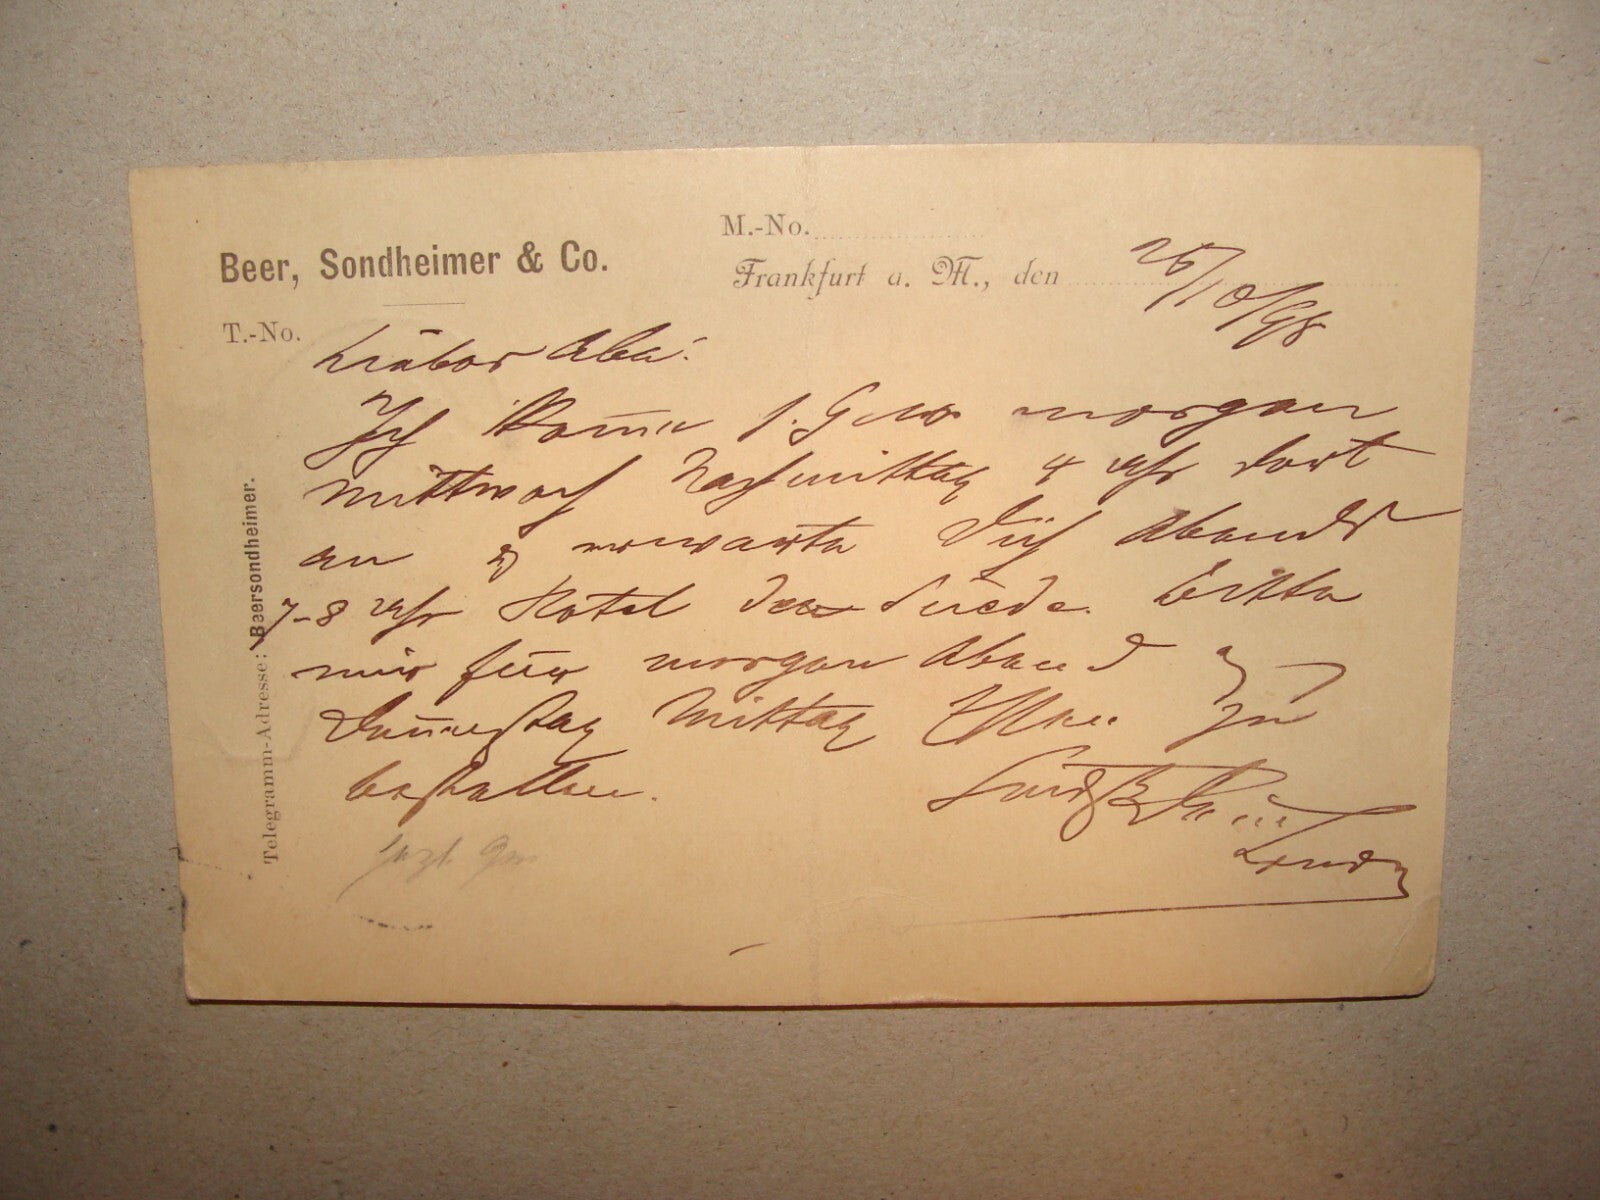 M.-No.
Beer, Sondheimer & Co.
Frankfurt a. M., den 25/10/98
T.-No.
Lieber Aba!
Ich komme s. G. w. morgen
Mittwoch Nachmittag 4 Uhr dort
an & erwarte Dich Abends
7-8 Uhr Hotel du Suède. Bitte
mir für morgen Abend &
Donnerstag Mittag Essen zu
bestellen.
Telegramm-Adresse: Beersondheimer.